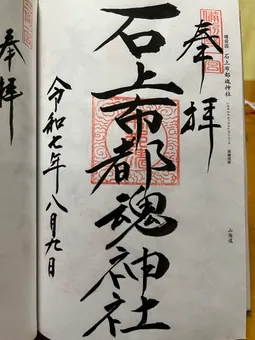 奉拝
備前国 石上布都魂神社
石上布都魂神社
令和七年八月九日
山陽道
奉拝